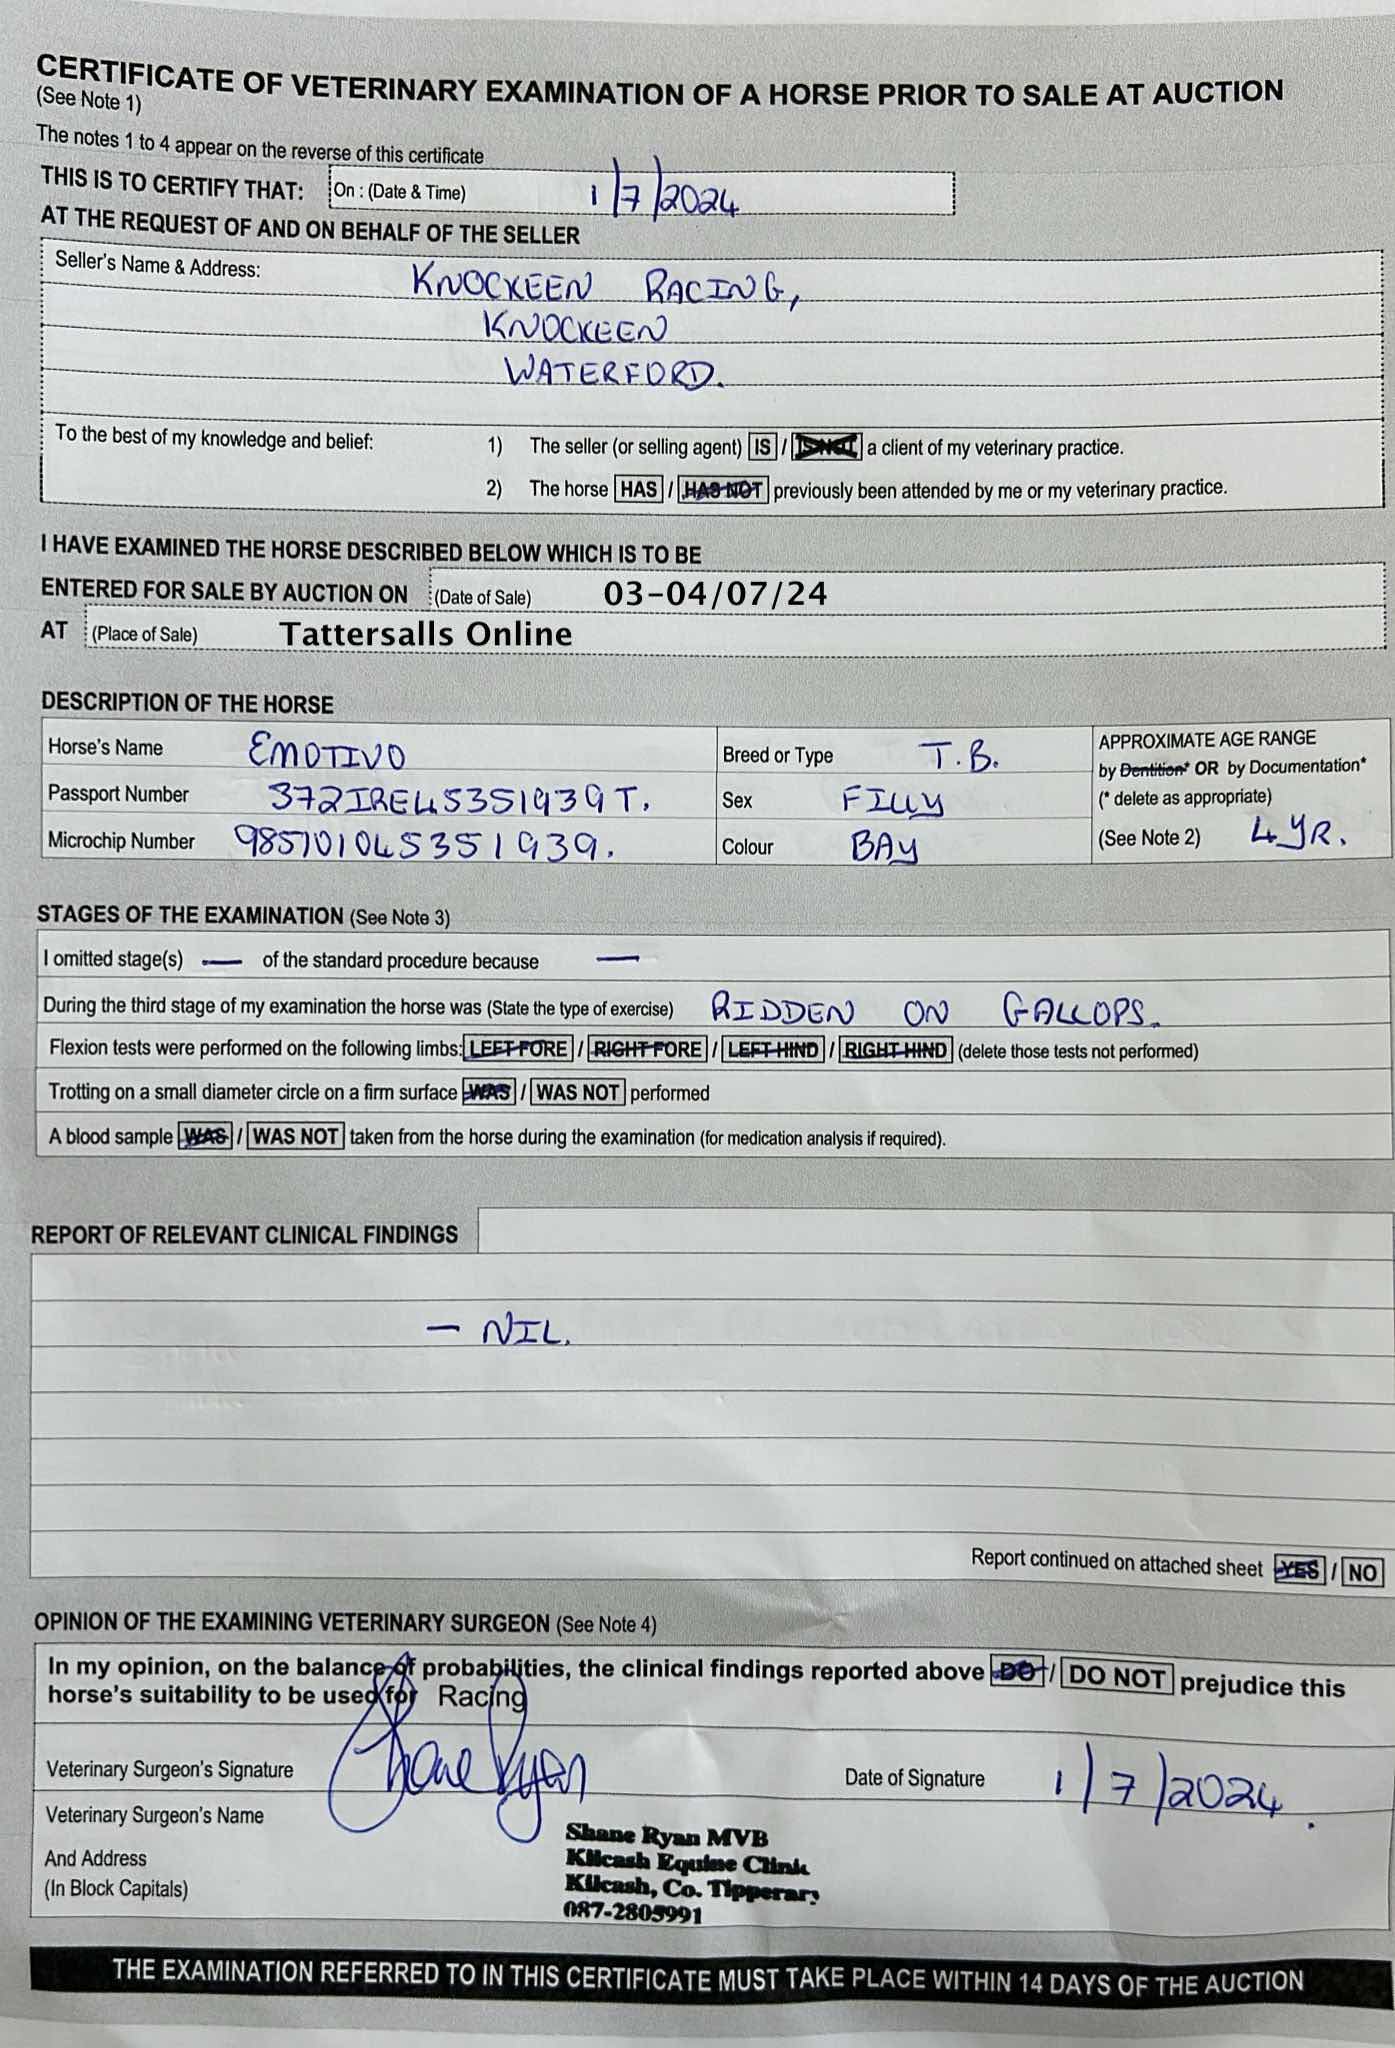 CERTIFICATE OF VETERINARY EXAMINATION OF A HORSE PRIOR TO SALE AT AUCTION
(See Note 1)
The notes 1 to 4 appear on the reverse of this certificate
THIS IS TO CERTIFY THAT: On : (Date & Time) 1/7/2024
AT THE REQUEST OF AND ON BEHALF OF THE SELLER
Seller's Name & Address: KNOCKEEN RACING,
KNOCKEEN
WATERFORD.
To the best of my knowledge and belief: 1) The seller (or selling agent) IS / IS NOT a client of my veterinary practice.
2) The horse HAS / HAS NOT previously been attended by me or my veterinary practice.
I HAVE EXAMINED THE HORSE DESCRIBED BELOW WHICH IS TO BE
ENTERED FOR SALE BY AUCTION ON (Date of Sale) 03-04/07/24
AT (Place of Sale) Tattersalls Online
DESCRIPTION OF THE HORSE
Horse's Name EMOTIVO Breed or Type T.B. APPROXIMATE AGE RANGE
by Dentition* OR by Documentation*
Passport Number 372IRE45351939T. Sex FILLY (* delete as appropriate)
Microchip Number 985101045351939. Colour BAY (See Note 2) 4YR.
STAGES OF THE EXAMINATION (See Note 3)
I omitted stage(s) — of the standard procedure because —
During the third stage of my examination the horse was (State the type of exercise) RIDDEN ON GALLOPS.
Flexion tests were performed on the following limbs: LEFT FORE / RIGHT FORE / LEFT HIND / RIGHT HIND (delete those tests not performed)
Trotting on a small diameter circle on a firm surface WAS / WAS NOT performed
A blood sample WAS / WAS NOT taken from the horse during the examination (for medication analysis if required).
REPORT OF RELEVANT CLINICAL FINDINGS
— NIL.
Report continued on attached sheet YES / NO
OPINION OF THE EXAMINING VETERINARY SURGEON (See Note 4)
In my opinion, on the balance of probabilities, the clinical findings reported above DO / DO NOT prejudice this
horse's suitability to be used for Racing
Veterinary Surgeon's Signature Shane Ryan Date of Signature 1/7/2024.
Veterinary Surgeon's Name Shane Ryan MVB
And Address Kilcash Equine Clinic
(In Block Capitals) Kilcash, Co. Tipperary
087-2805991
THE EXAMINATION REFERRED TO IN THIS CERTIFICATE MUST TAKE PLACE WITHIN 14 DAYS OF THE AUCTION